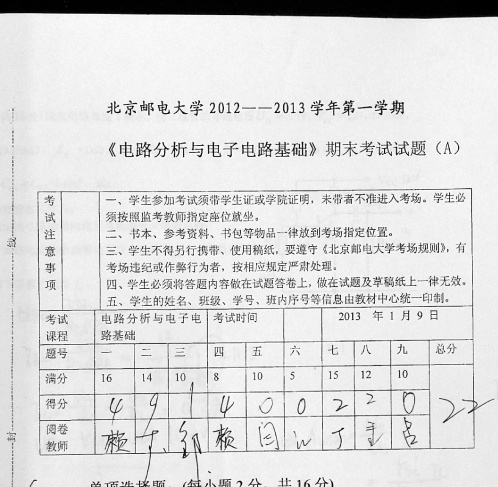 北京邮电大学 2012——2013 学年第一学期
《电路分析与电子电路基础》期末考试试题（A）
考试注意事项
一、学生参加考试须带学生证或学院证明，未带者不准进入考场。学生必
须按照监考教师指定座位就坐。
二、书本、参考资料、书包等物品一律放到考场指定位置。
三、学生不得另行携带、使用稿纸，要遵守《北京邮电大学考场规则》，有
考场违纪或作弊行为者，按相应规定严肃处理。
四、学生必须将答题内容做在试题答卷上，做在试题及草稿纸上一律无效。
五、学生的姓名、班级、学号、班内序号等信息由教材中心统一印制。
考试 电路分析与电子电 考试时间 2013 年 1 月 9 日
课程 路基础
题号 一 二 三 四 五 六 七 八 九 总分
满分 16 14 10 8 10 5 15 12 10
得分 4 9 1 4 0 0 2 2 0 22
阅卷
教师 赖 郭 赖 闫 丁 吕
单项选择题：(每小题 2 分，共 16 分)
封